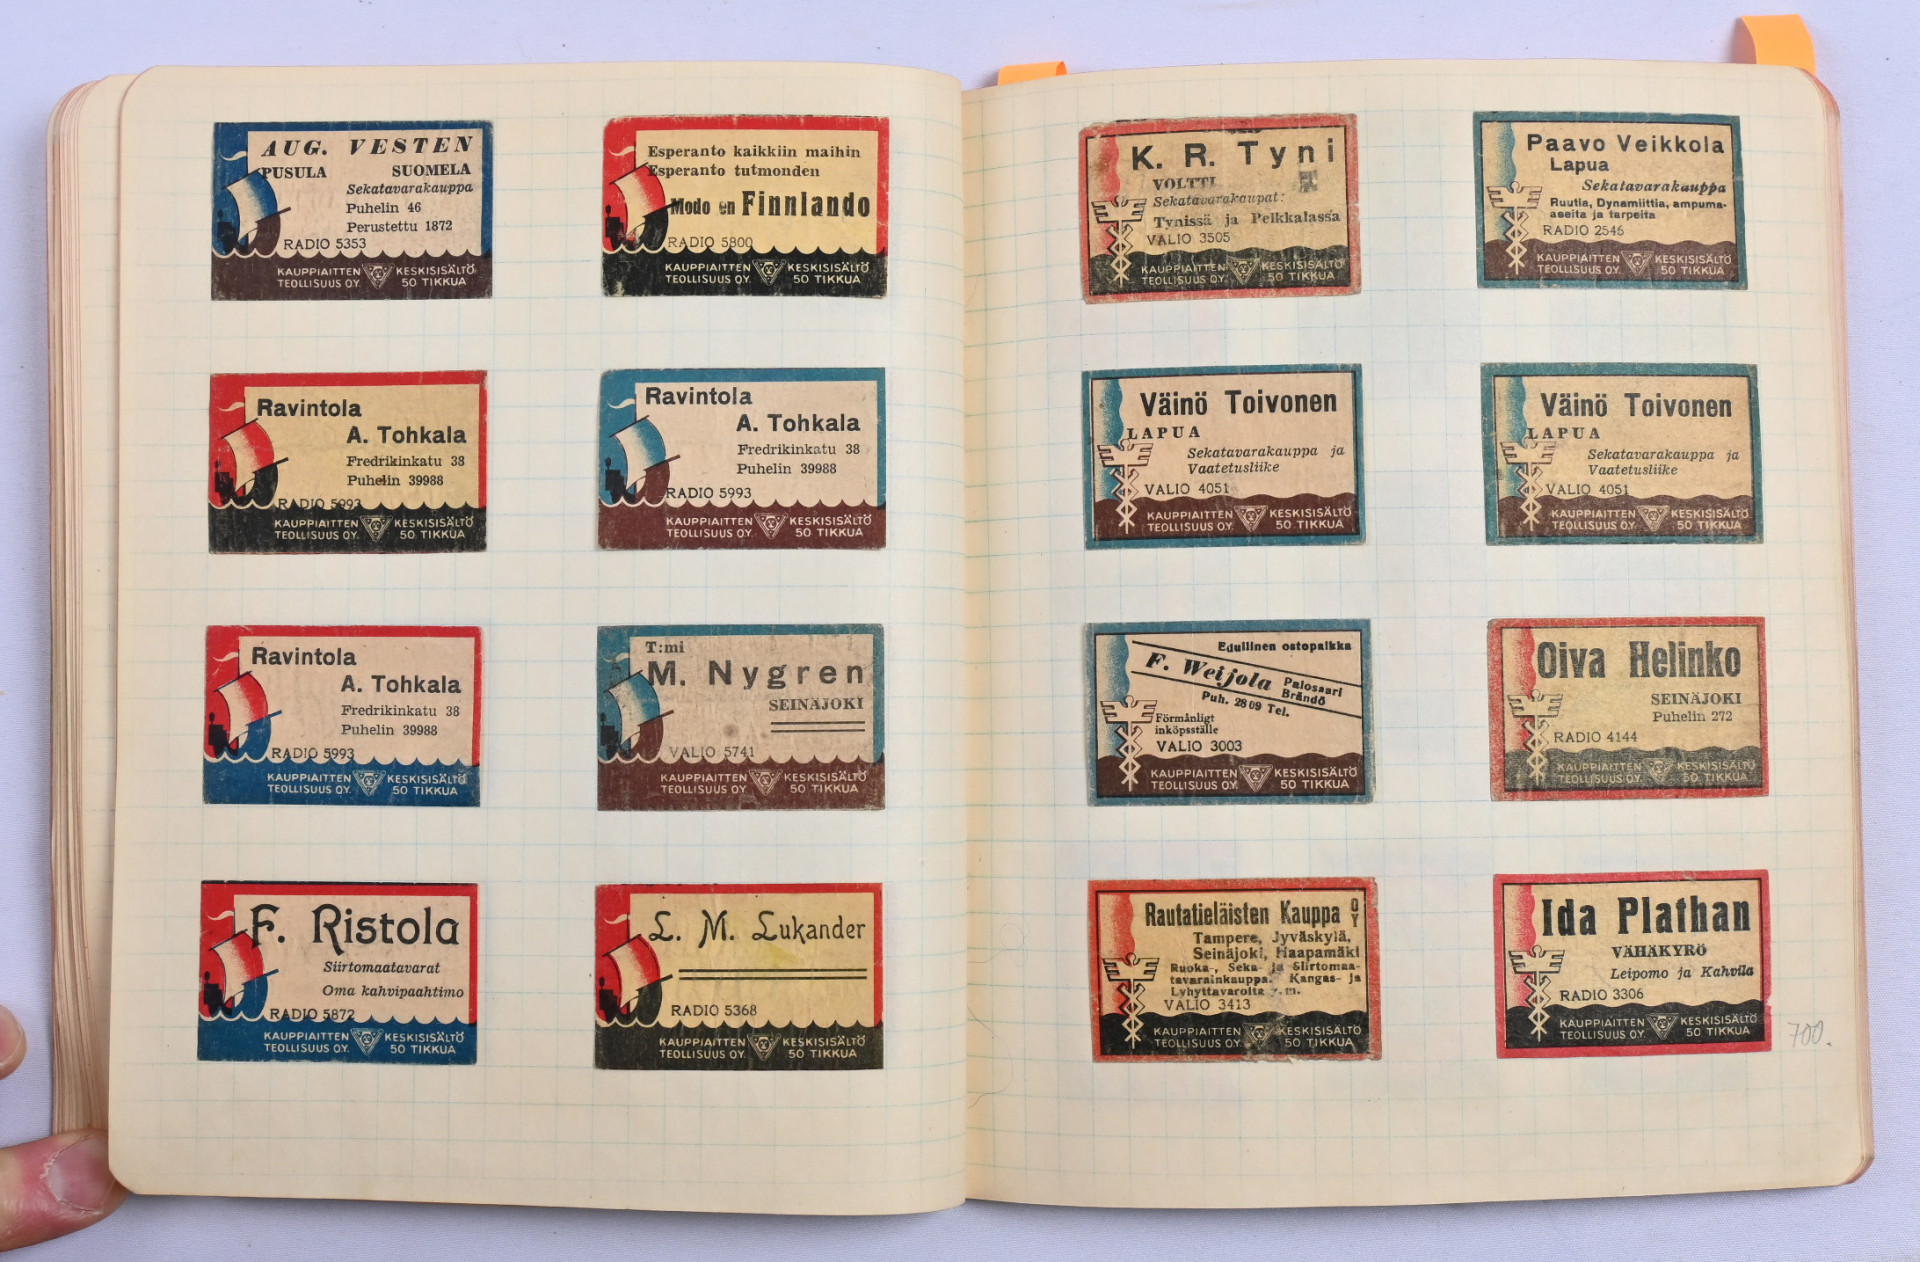 AUG. VESTEN
PUSULA SUOMELA
Sekatavarakauppa
Puhelin 46
Perustettu 1872
RADIO 5353
KAUPPIAITTEN KESKISISÄLTÖ
TEOLLISUUS OY. 50 TIKKUA
Esperanto kaikkiin maihin
Esperanto tutmonden
Modo en Finnlando
RADIO 5800
KAUPPIAITTEN KESKISISÄLTÖ
TEOLLISUUS OY. 50 TIKKUA
Ravintola
A. Tohkala
Fredrikinkatu 38
Puhelin 39988
RADIO 5993
KAUPPIAITTEN KESKISISÄLTÖ
TEOLLISUUS OY. 50 TIKKUA
Ravintola
A. Tohkala
Fredrikinkatu 38
Puhelin 39988
RADIO 5993
KAUPPIAITTEN KESKISISÄLTÖ
TEOLLISUUS OY. 50 TIKKUA
Ravintola
A. Tohkala
Fredrikinkatu 38
Puhelin 39988
RADIO 5993
KAUPPIAITTEN KESKISISÄLTÖ
TEOLLISUUS OY. 50 TIKKUA
T:mi
M. Nygren
SEINÄJOKI
VALIO 5741
KAUPPIAITTEN KESKISISÄLTÖ
TEOLLISUUS OY. 50 TIKKUA
F. Ristola
Siirtomaatavarat
Oma kahvipaahtimo
RADIO 5872
KAUPPIAITTEN KESKISISÄLTÖ
TEOLLISUUS OY. 50 TIKKUA
L. M. Lukander
RADIO 5368
KAUPPIAITTEN KESKISISÄLTÖ
TEOLLISUUS OY. 50 TIKKUA
K. R. Tyni
VOLTTI
Sekatavarakaupat:
Tynissä ja Pelkkalassa
VALIO 3505
KAUPPIAITTEN KESKISISÄLTÖ
TEOLLISUUS OY. 50 TIKKUA
Paavo Veikkola
Lapua
Sekatavarakauppa
Ruutia, Dynamiittia, ampuma-
aseita ja tarpeita
RADIO 2546
KAUPPIAITTEN KESKISISÄLTÖ
TEOLLISUUS OY. 50 TIKKUA
Väinö Toivonen
LAPUA
Sekatavarakauppa ja
Vaatetusliike
VALIO 4051
KAUPPIAITTEN KESKISISÄLTÖ
TEOLLISUUS OY. 50 TIKKUA
Väinö Toivonen
LAPUA
Sekatavarakauppa ja
Vaatetusliike
VALIO 4051
KAUPPIAITTEN KESKISISÄLTÖ
TEOLLISUUS OY. 50 TIKKUA
Edullinen ostopaikka
F. Weijola Palosaari
Brändö
Puh. 2809 Tel.
Förmånligt
inköpsställe
VALIO 3003
KAUPPIAITTEN KESKISISÄLTÖ
TEOLLISUUS OY. 50 TIKKUA
Oiva Helinko
SEINÄJOKI
Puhelin 272
RADIO 4144
KAUPPIAITTEN KESKISISÄLTÖ
TEOLLISUUS OY. 50 TIKKUA
Rautatieläisten Kauppa OY
Tampere, Jyväskylä,
Seinäjoki, Haapamäki
Ruoka-, Seka- ja Siirtomaa-
tavarainkauppa. Kangas- ja
Lyhyttavaroita y.m.
VALIO 3413
KAUPPIAITTEN KESKISISÄLTÖ
TEOLLISUUS OY. 50 TIKKUA
Ida Plathan
VÄHÄKYRÖ
Leipomo ja Kahvila
RADIO 3306
KAUPPIAITTEN KESKISISÄLTÖ
TEOLLISUUS OY. 50 TIKKUA
700.